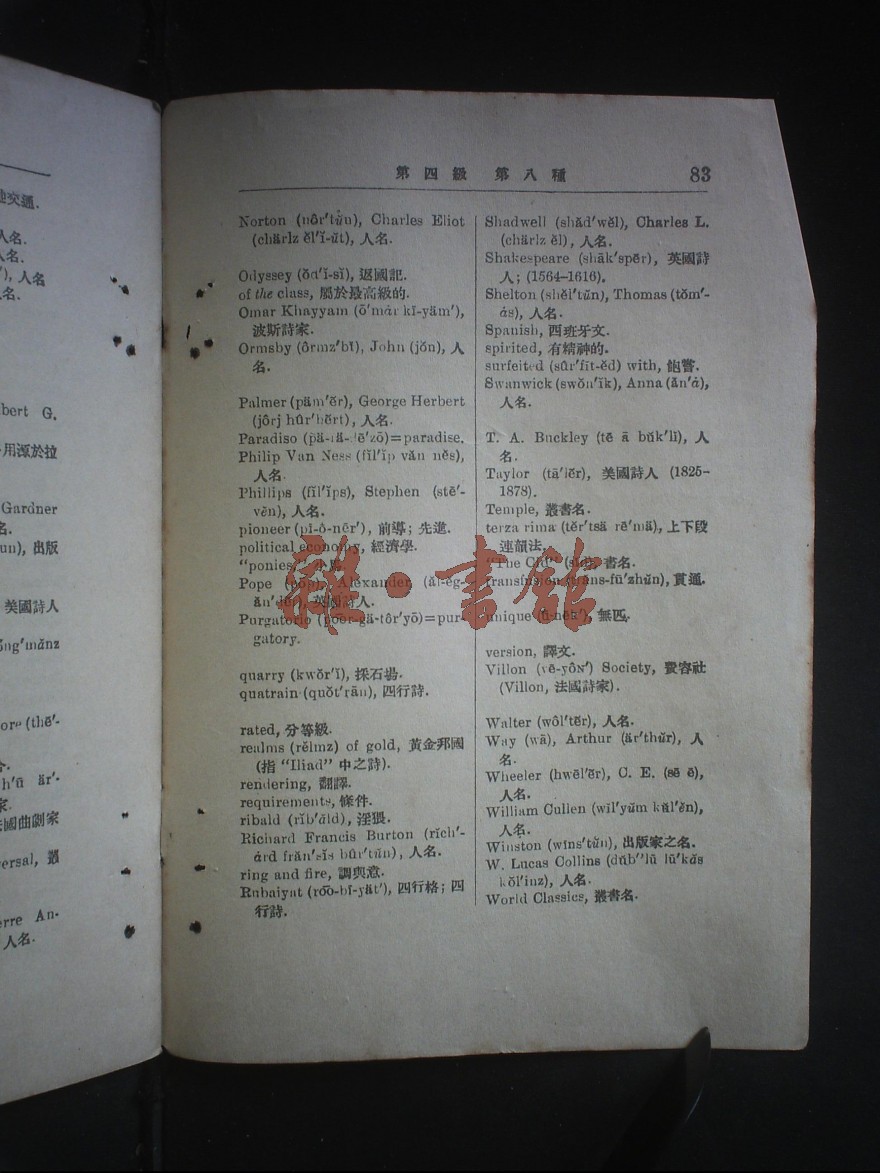 地交通.
人名.
人名.
'), 人名
名.
bert G.
用源於拉
Gardner
名.
un), 出版
美國詩人
ŏng'mănz
ore (thē'-
h'ū är'-
家.
法國曲劇家
versal, 叢
erre An-
人名.
第四級 第八種 83
Norton (nôr'tŭn), Charles Eliot
(chärlz ĕl'ĭ-ŭt), 人名.
Odyssey (ŏd'ĭ-sĭ), 返國記.
of the class, 屬於最高級的.
Omar Khayyam (ō'mȧr kī-yäm'),
波斯詩家.
Ormsby (ôrmz'bĭ), John (jŏn), 人
名.
Palmer (päm'ẽr), George Herbert
(jôrj hûr'bẽrt), 人名.
Paradiso (pä-rä-dē'zō)=paradise.
Philip Van Ness (fĭl'ĭp văn nĕs),
人名.
Phillips (fĭl'ĭps), Stephen (stē'-
vĕn), 人名.
pioneer (pī-ô-nēr'), 前導; 先進.
political economy, 經濟學.
"ponies,"
Pope (pōp), Alexander (ăl-ĕg-
ăn'dẽr), 英國詩人.
Purgatorio (poor-gä-tôr'yō)=pur-
gatory.
quarry (kwŏr'ĭ), 採石場.
quatrain (quŏt'rān), 四行詩.
rated, 分等級.
realms (rĕlmz) of gold, 黃金邦國
(指 "Iliad" 中之詩).
rendering, 翻譯.
requirements, 條件.
ribald (rĭb'ȧld), 淫猥.
Richard Francis Burton (rĭch'-
ȧrd frăn'sĭs bûr'tŭn), 人名.
ring and fire, 調與意.
Rubaiyat (roo-bī-yät'), 四行格; 四
行詩.
Shadwell (shăd'wĕl), Charles L.
(chärlz ĕl), 人名.
Shakespeare (shāk'spēr), 英國詩
人; (1564–1616).
Shelton (shĕl'tŭn), Thomas (tŏm'-
ȧs), 人名.
Spanish, 西班牙文.
spirited, 有精神的.
surfeited (sûr'fĭt-ĕd) with, 飽嘗.
Swanwick (swŏn'ĭk), Anna (ăn'ȧ),
人名.
T. A. Buckley (tē ā bŭk'lĭ), 人
名.
Taylor (tā'lẽr), 美國詩人 (1825–
1878).
Temple, 叢書名.
terza rima (tĕr'tsä rē'mä), 上下段
連韻法.
"The Cid" (sĭd), 書名.
transfusion (trăns-fū'zhŭn), 貫通.
unique (û-nēk'), 無匹.
version, 譯文.
Villon (vē-yôɴ') Society, 費容社
(Villon, 法國詩家).
Walter (wôl'tẽr), 人名.
Way (wā), Arthur (är'thŭr), 人
名.
Wheeler (hwēl'ẽr), C. E. (sē ē),
人名.
William Cullen (wĭl'yŭm kŭl'ĕn),
人名.
Winston (wĭns'tŭn), 出版家之名.
W. Lucas Collins (dŭb''lū lū'kȧs
kŏl'ĭnz), 人名.
World Classics, 叢書名.
雜·書館